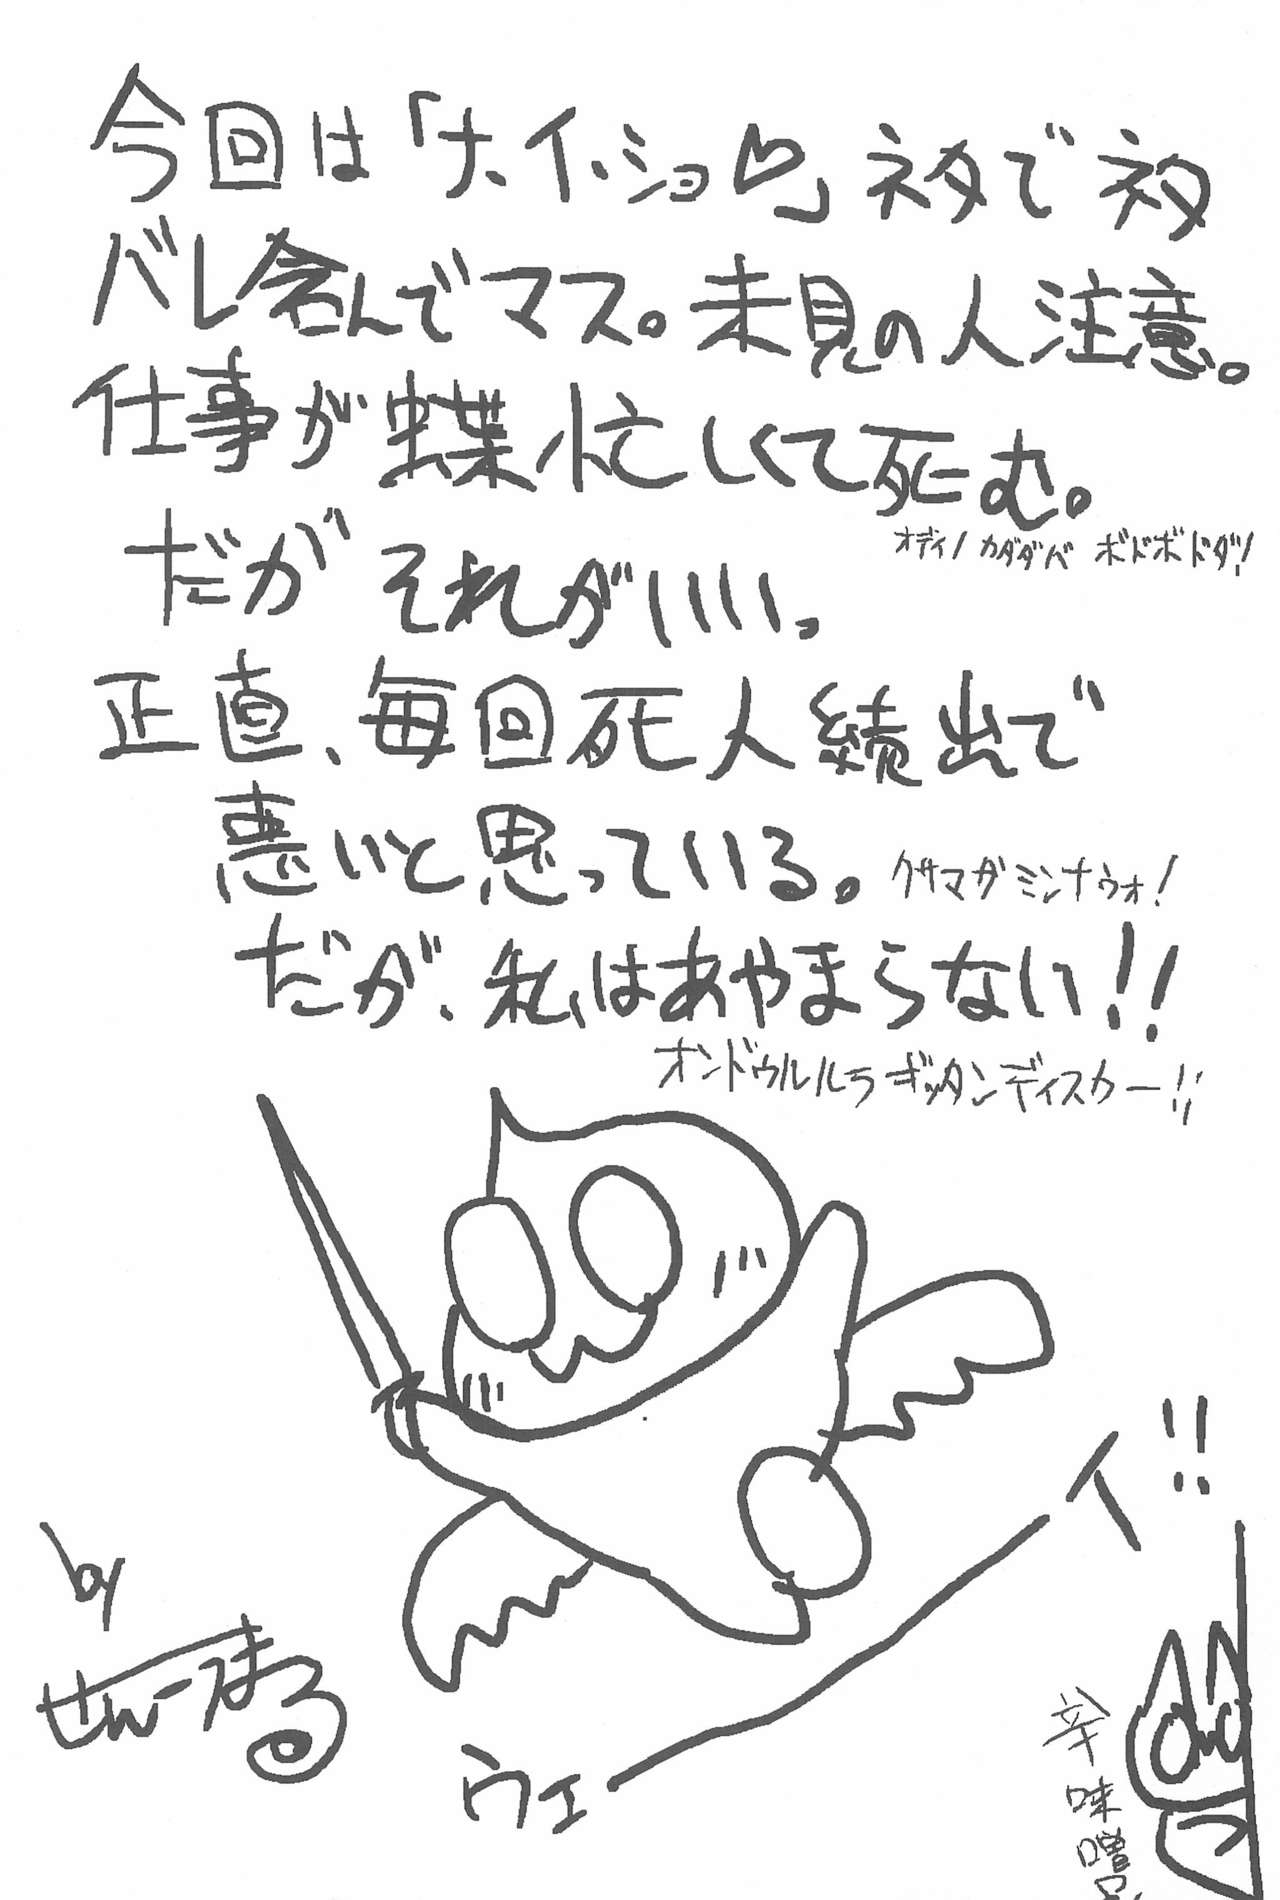 今回は「ナ、イ、ショ♡」ネタでネタ
バレ含んでマス。未見の人注意。
仕事が蝶忙しくて死む。
オディノ カダダバ ボドボドダ!
だが それがいい。
正直、毎回死人続出で
悪いと思っている。
クサマガ ミンナウォ!
だが、私はあやまらない!!
オンドゥルルラギッタンディスカー!!
ウェーイ!!
by
辛味噌